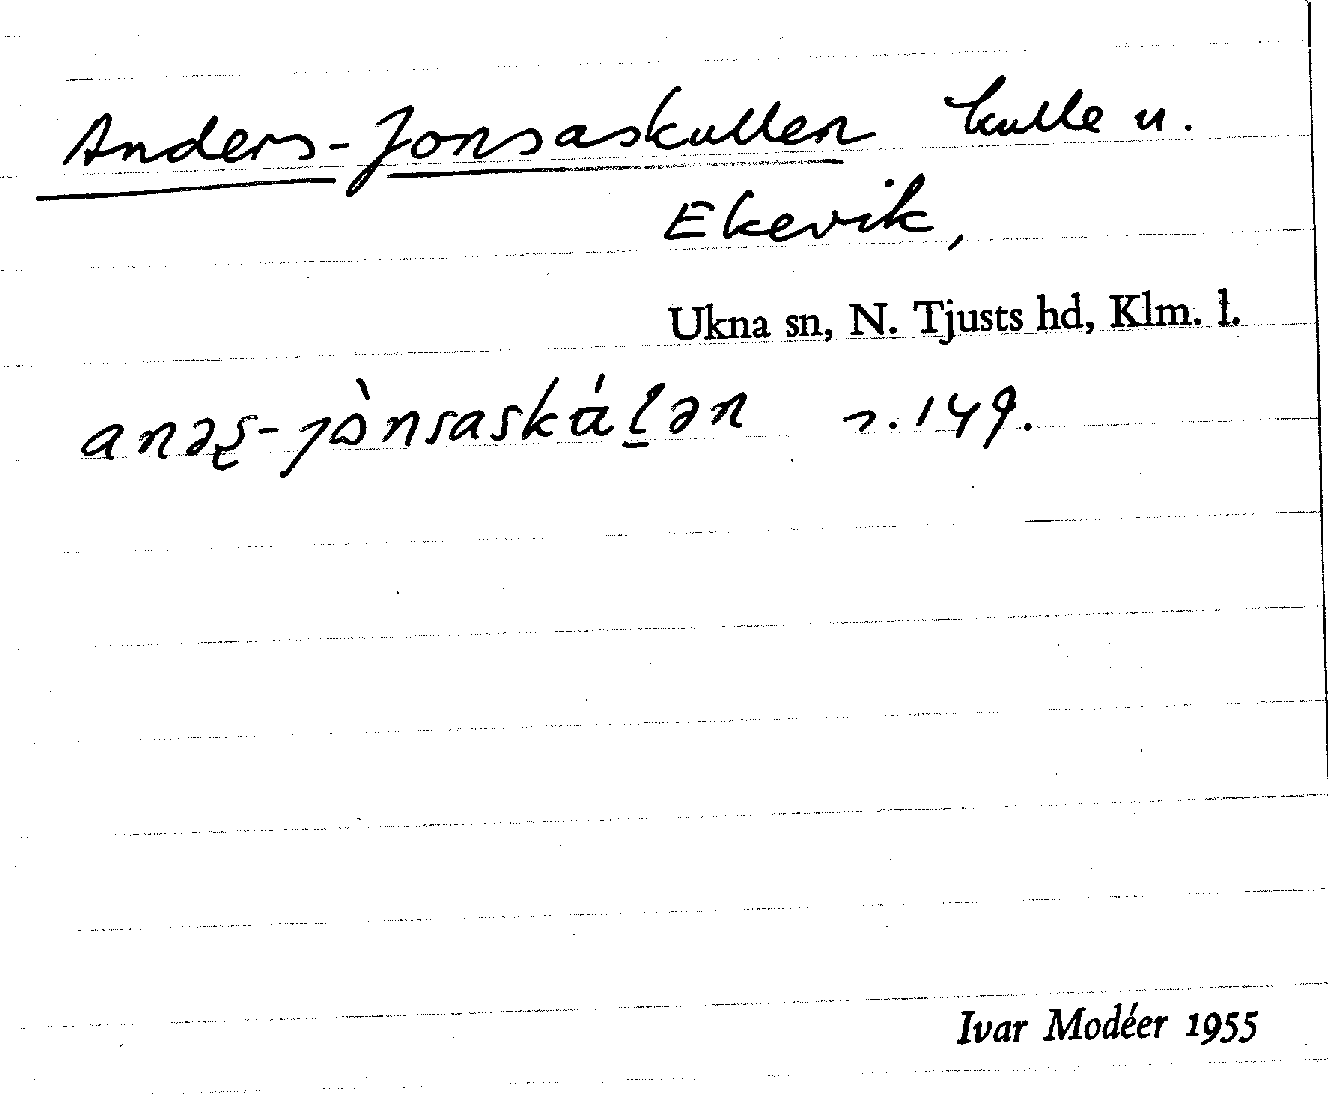 Anders-Jonsaskullen kulle u.
Ekevik,
Ukna sn, N. Tjusts hd, Klm. l.
r. 149.
Ivar Modéer 1955